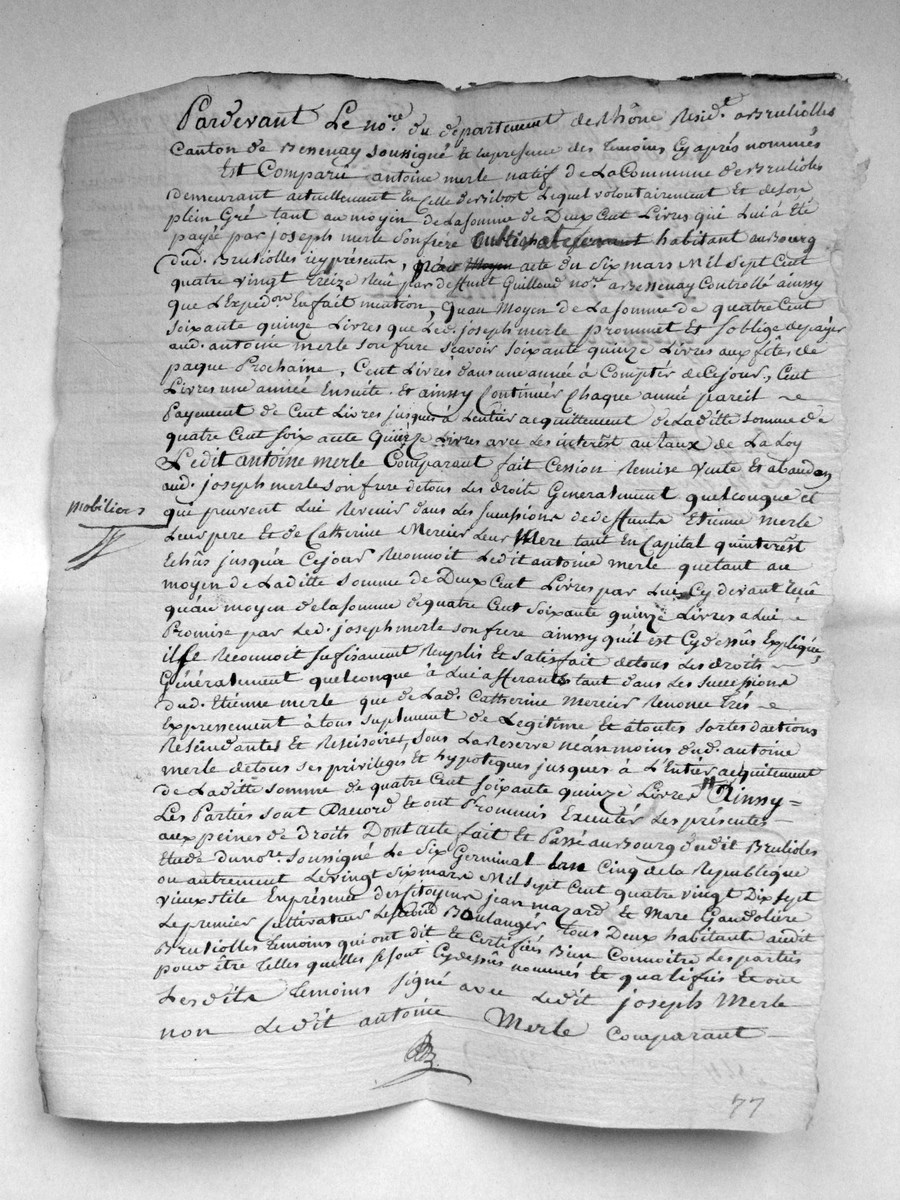 Pardevant Le no.re du departement de Rhône Resid.t a Brulioles
Canton de Bessenay soussigné et En presence des temoins Cy après nommés
Est Comparu antoine merle natif de La Commune de Brulioles
demeurant actuellement En celle de Bibost Lequel volontairement Et de son
plein Gré tant au moyen de La somme de Deux Cent Livres qui Lui à Eté
payée par joseph merle son frère habitant au Bourg
dud. Brulioles icy présent, acte du six mars Mil sept Cent
quatre vingt treize Reçu par deffunt Guilloud no.re a Bessenay Controllé ainssy
que L'Exped.on En fait mention, Quau Moyen de La somme de quatre Cent
soixante quinze Livres que Led. joseph merle prommet Et s'oblige de payer
aud. antoine merle son frere scavoir soixante quinze Livres aux fêtes de
paque Prochaine, Cent Livres dans une année à Compter de Ce jour, Cent
Livres une année Ensuite Et ainssy Continuer Chaque année pareil
Payement de Cent Livres jusques à Lentier acquittement de La ditte somme de
quatre Cent soix ante Quinze Livres avec Les interest au taux de La Loy
Ledit antoine merle Comparant fait Cession Remise vente Et abandon
aud. joseph merle son frere de tous Les droits Generalement quelconque
mobiliers
qui peuvent Lui Revenir dans Les successions de deffunts Etienne Merle
Leur pere Et de Catherine Mercier Leur Mere tant En Capital quinterêst
Echûs jusqua Ce jour Reconnoit Ledit antoine merle quetant au
moyen de La ditte somme de Deux Cent Livres par Lui Cy devant Reçû
quau moyen de la somme de quatre Cent soixante quinze Livres a Lui
Promise par Led. joseph merle son frere ainssy quil est Cy dessûs Expliqué
il se Reconnoit sufisament Remplis Et satisfait de tous Les droits
Généralement quelconque à Lui afferants tant dans Les successions
dud. Etienne merle que de Lad. Catherine Mercier Renonce très
Expressement à tous suplement de Legitime Et a toutes sortes dactions
Rescindantes Et Rescisoires, sous La Reserve néanmoins dud. antoine
merle de tous ses privileges Et hypoteques jusques à L'Entier acquitement
de La ditte somme de quatre Cent soixante quinze Livres Ainssy =
Les Parties sont Daccord Et ont Prommis Executer Les présentes
aux peines de droits Dont acte fait et Passé au Bourg dudit Brulioles
Etude du no.re soussigné Le six Germinal Lan Cinq de la Republique
ou autrement Le vingt six mars Mil sept Cent quatre vingt Dix sept
vieux stile En présence des Citoyens jean mazard Et Marc Gandolière
Le premier Cultivateur Le second Boulanger tous Deux habitants audit
Brulioles temoins qui ont dit Et Certifiés Bien Connoitre Les parties
pour être telles quelles se sont Cy dessûs nommés Et qualifiés Et ont
Lesdits temoins signé avec Ledit joseph Merle
non Ledit antoine Merle Comparant
77